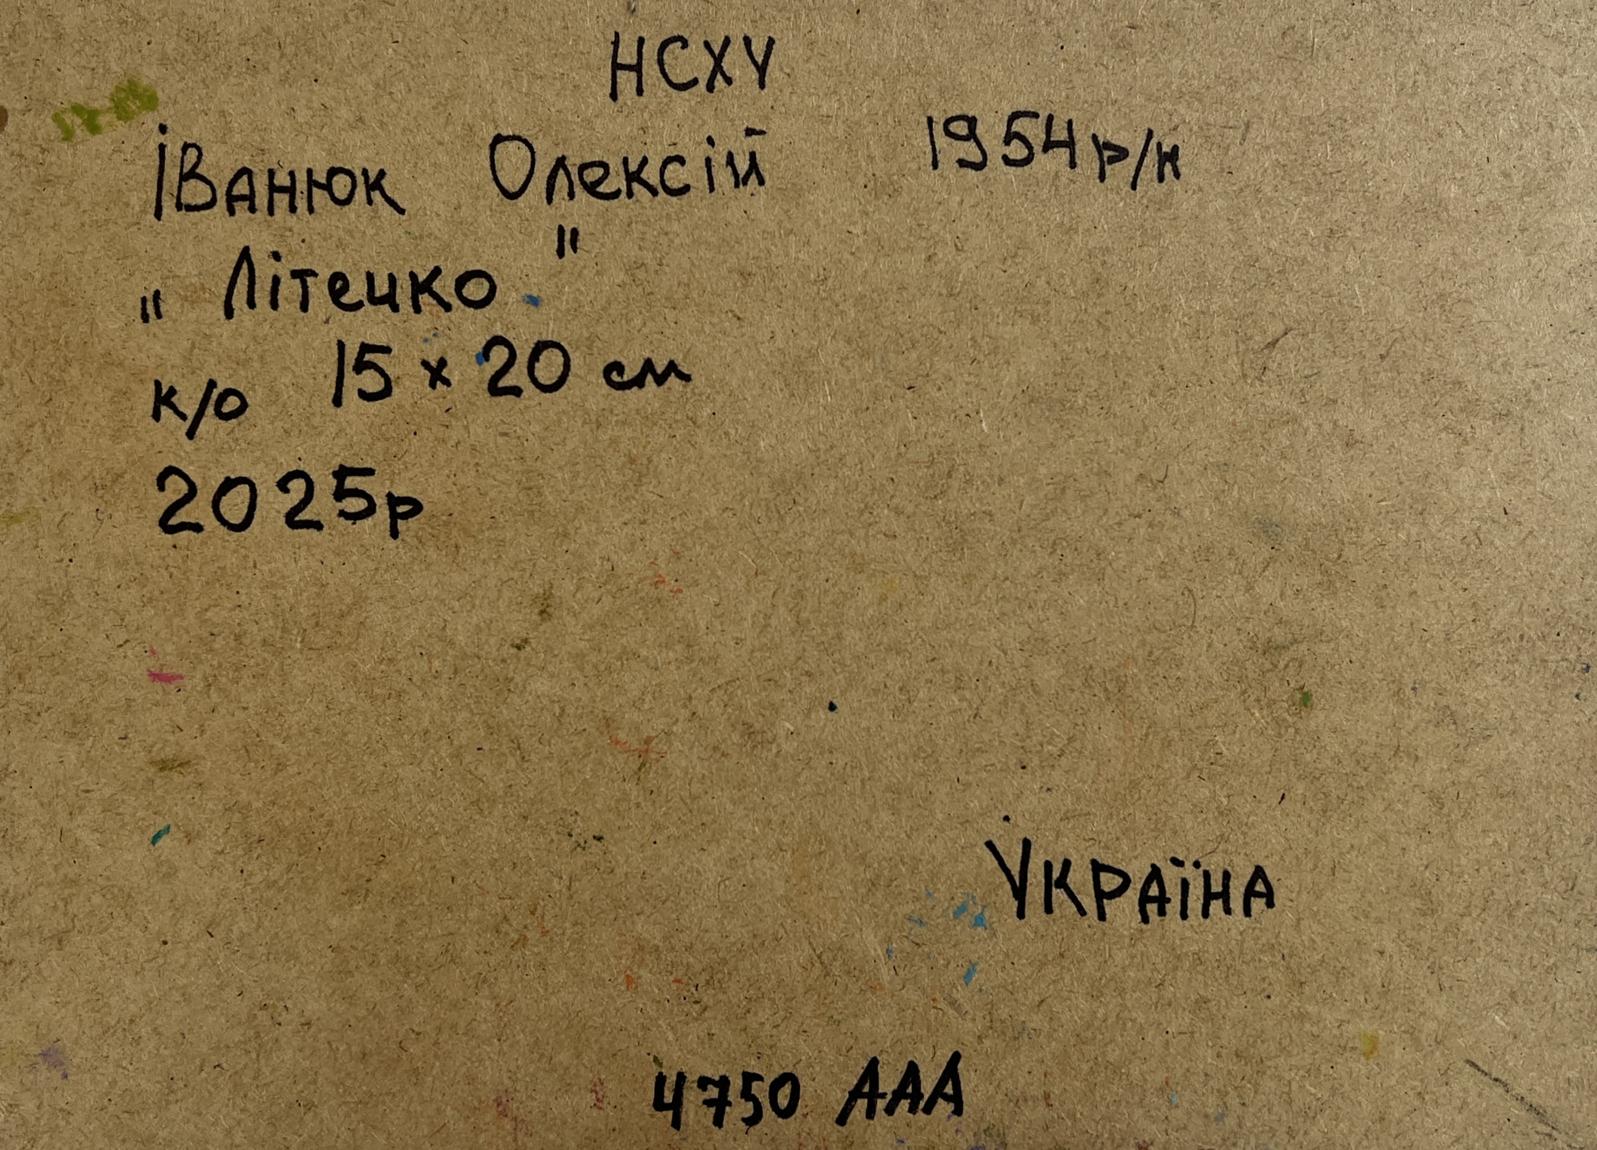 НСХУ
Іванюк Олексій 1954 р/н
„Літечко"
к/о 15 x 20 см
2025р
Україна
4750 ААА